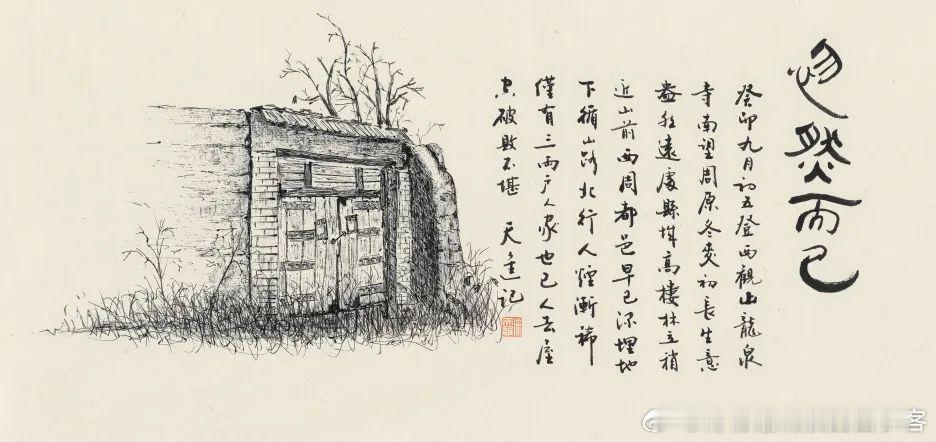 忽然而已
癸卯九月初五登西觀山龍泉
寺南望周原冬麥初長生意
盎然遠處縣城高樓林立稍
近山前西周都邑早已深埋地
下循山路北行人煙漸稀
僅有三兩戶人家也已人去屋
空破敗不堪 天進記
客